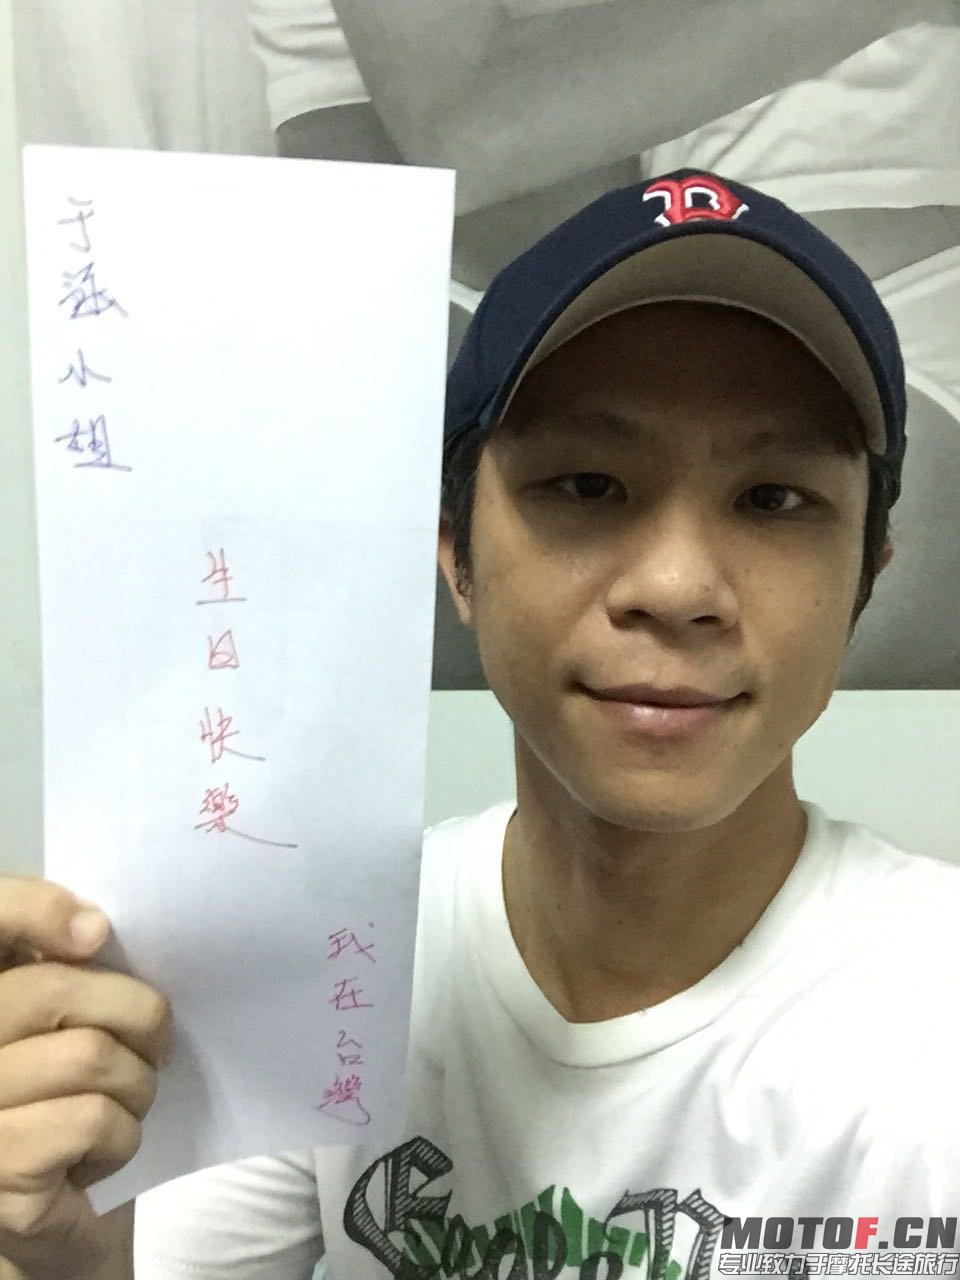 于涵小姐
生日快樂
我在台灣
B
MOTOF.CN
专业致力于摩托长途旅行